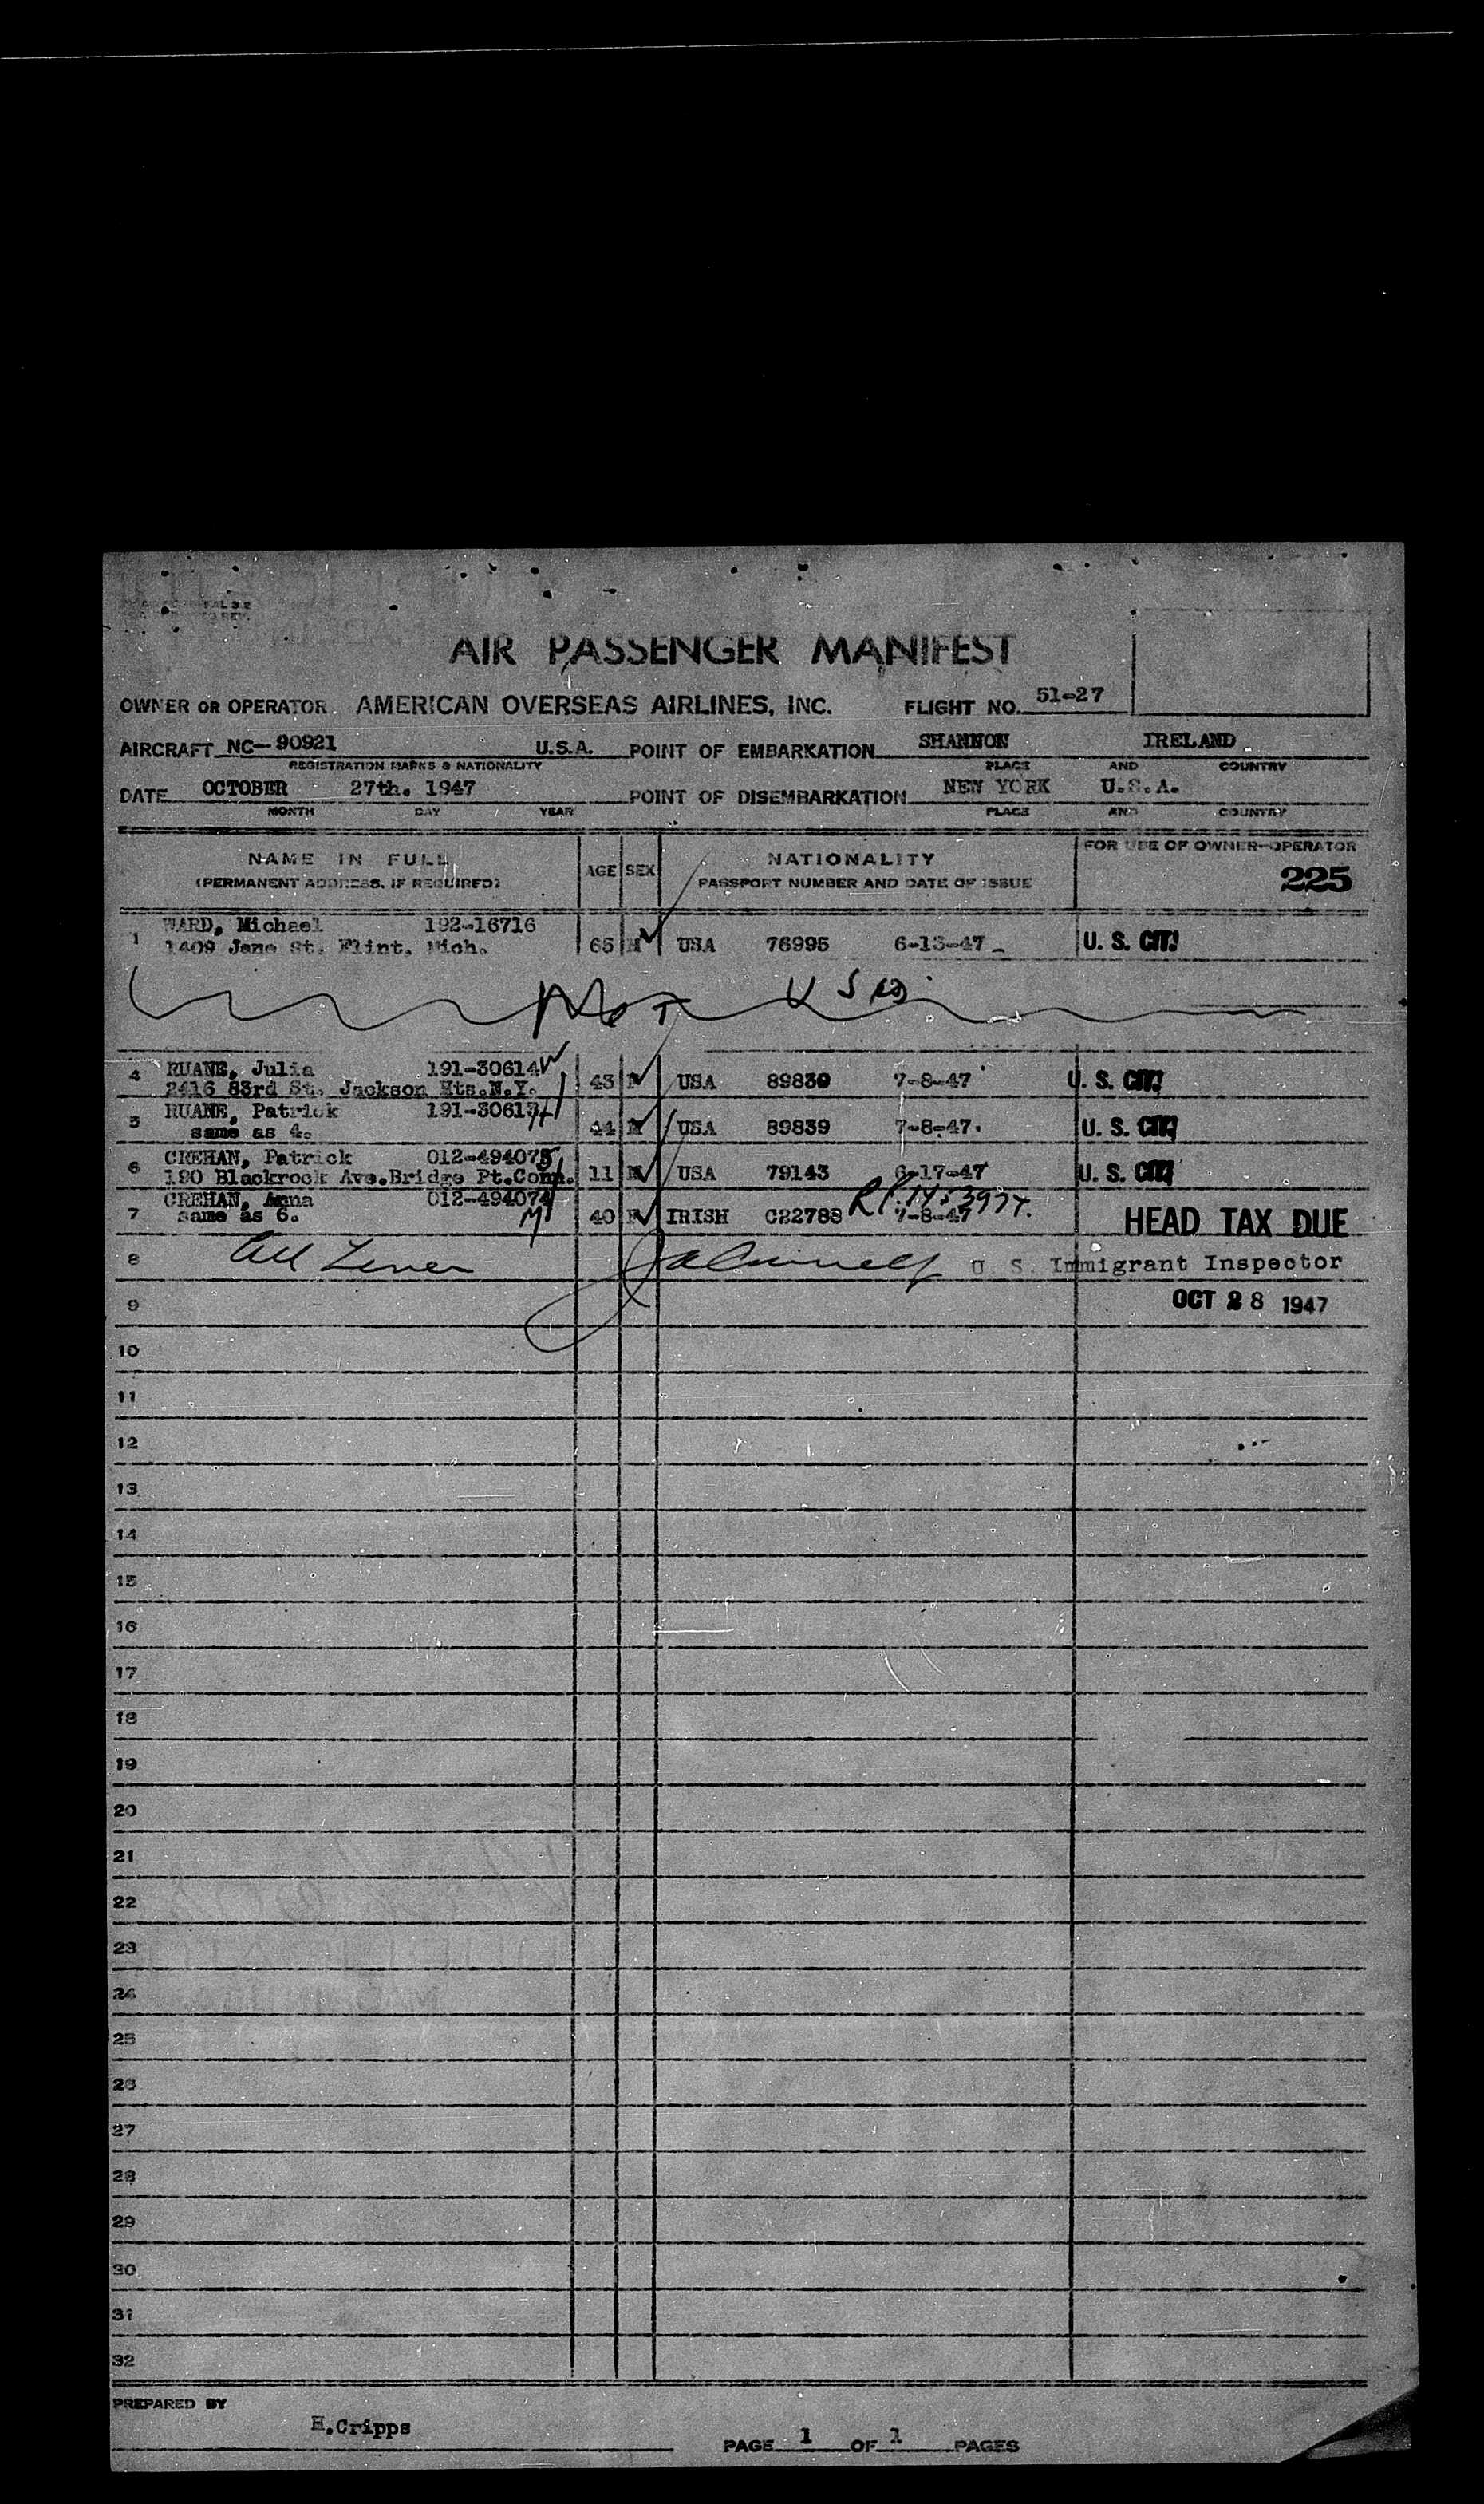 AIR PASSENGER MANIFEST
OWNER OR OPERATOR AMERICAN OVERSEAS AIRLINES, INC. FLIGHT NO. 51-27
AIRCRAFT NC-90921 U.S.A. POINT OF EMBARKATION SHANNON IRELAND
REGISTRATION MARKS & NATIONALITY PLACE AND COUNTRY
DATE OCTOBER 27th. 1947 POINT OF DISEMBARKATION NEW YORK U.S.A.
MONTH DAY YEAR PLACE AND COUNTRY
NAME IN FULL AGE SEX NATIONALITY FOR USE OF OWNER-OPERATOR
(PERMANENT ADDRESS, IF REQUIRED) PASSPORT NUMBER AND DATE OF ISSUE 225
WARD, Michael 192-16716
1 1409 Jane St. Flint, Mich. 65 M USA 76995 6-13-47 U. S. CIT.
Not Used
4 RUANE, Julia 191-30614
2416 83rd St. Jackson Hts.N.Y. 43 USA 89839 7-8-47 U. S. CIT.
5 RUANE, Patrick 191-30613
same as 4. 44 M USA 89839 7-8-47. U. S. CIT.
6 CREHAN, Patrick 012-494075
190 Blackrock Ave.Bridge Pt.Conn. 11 M USA 79143 6-17-47 U. S. CIT.
CREHAN, Anna 012-494074
7 same as 6. 40 F IRISH C22788 7-8-47 HEAD TAX DUE
8 U. S. Immigrant Inspector
9 OCT 28 1947
10
11
12
13
14
15
16
17
18
19
20
21
22
23
24
25
26
27
28
29
30
31
32
PREPARED BY
H.Cripps
PAGE 1 OF 1 PAGES